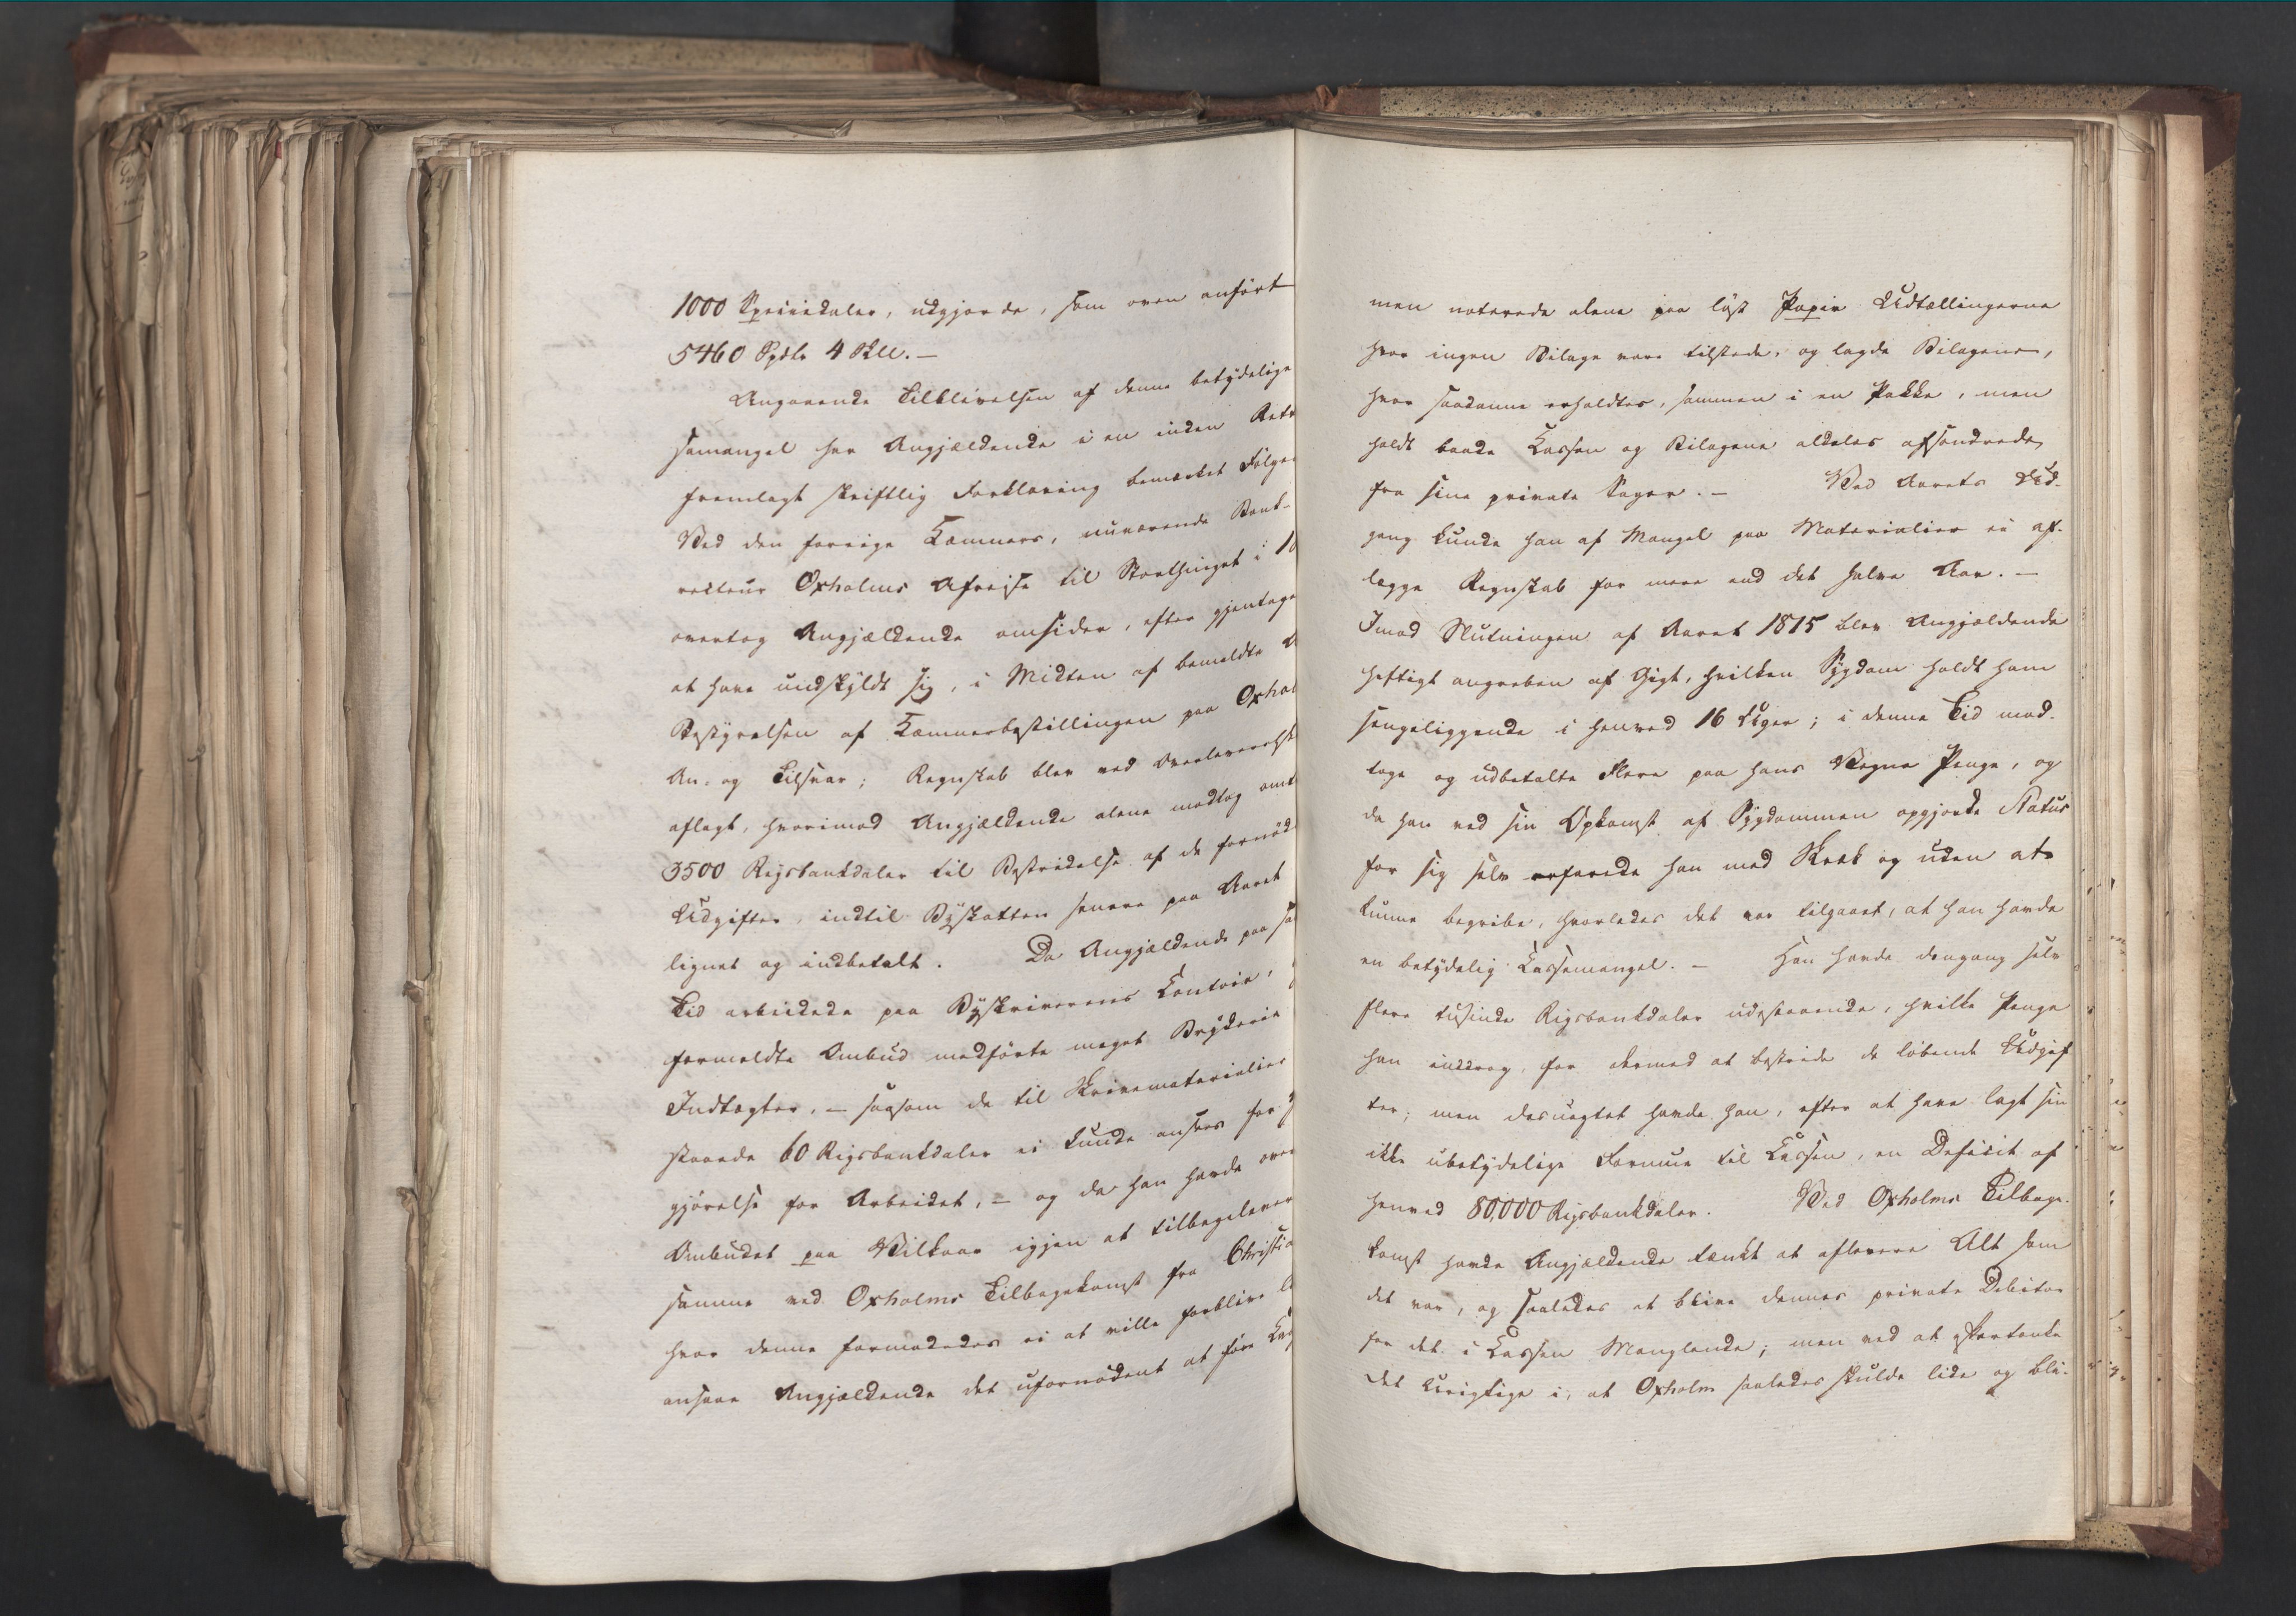 1000 Speciedaler, udgjorde, som oven anført
5460 Spdlr 4 Skll. —
Angaaende Tilblivelsen af denne betydelige
semangel har Angjældende i en inden Rett
fremlagt skriftlig Forklaring bemærket Følge
Ved den forrige Kæmners, nuværende Bank-
rekteur Oxholms Afreise til Storthinget i 1
overtog Angjældende omsider, efter gjentage
at have undskyldt sig, i Midten af bemeldte A
Bestyrelsen af Kæmnerbestillingen paa Oxhol
An- og Tilsvar; Regnskab blev ved Overleverels
aflagt, hvorimod Angjældende alene modtog omt
3500 Rigsbankdaler til Bestridelse af de fornød
Udgifter, indtil Byskatten senere paa Aaret
lignet og indbetalt. Da Angjældende paa sa
Tid arbeidede paa Byskriverens Contoir,
formeldte Ombud medførte meget Bryderie
Indtægter, — saasom de til Skrivematerialier
staaede 60 Rigsbankdaler ei kunde ansees for G
gjørelse for Arbeidet, — og da han havde over
Ombudet paa Vilkaar igjen at tilbagelever
samme ved Oxholms Tilbagekomst fra Christia
hvor denne formodedes ei at ville forblive l
ansaae Angjældende det ufornødent at føre
men noterede alene paa løst Papir Udtællingerne
hvor ingen Bilage vare tilstede, og lagde Bilagene,
hvor saadanne erholdtes, sammen i en Pakke, men
holdt baade Cassen og Bilagene aldeles afsondrede
fra sine private Sager. — Ved Aarets Ud-
gang kunde han af Mangel paa Materialier ei af-
lægge Regnskab for mere end det halve Aar. —
Imod Slutningen af Aaret 1815 blev Angjældende
heftigt angreben af Gigt, hvilken Sygdom holdt ham
sengeliggende i henved 16 Uger; i denne Tid mod-
toge og udbetalte Flere paa hans Vegne Penge, og
da han ved sin Opkomst af Sygdommen opgjorde Status
for sig selv erfarede han med Skræk og uden at
kunne begribe, hvorledes det var tilgaaet, at han havde
en betydelig Cassemangel. — Han havde dengang selv
flere tusinde Rigsbankdaler udestaaende, hvilke Penge
han inddrog, for dermed at bestride de løbende Udgif
ter; men desuagtet havde han, efter at have lagt sin
ikke ubetydelige Formue til Cassen, en Deficit af
henved 80,000 Rigsbankdaler. Ved Oxholms Tilbage-
komst havde Angjældende tænkt at aflevere Alt som
det var, og saaledes at blive dennes private Debitor
for det i Cassen Manglende; men ved at eftertænke
det Urigtige i, at Oxholm saaledes skulde lide og bli-